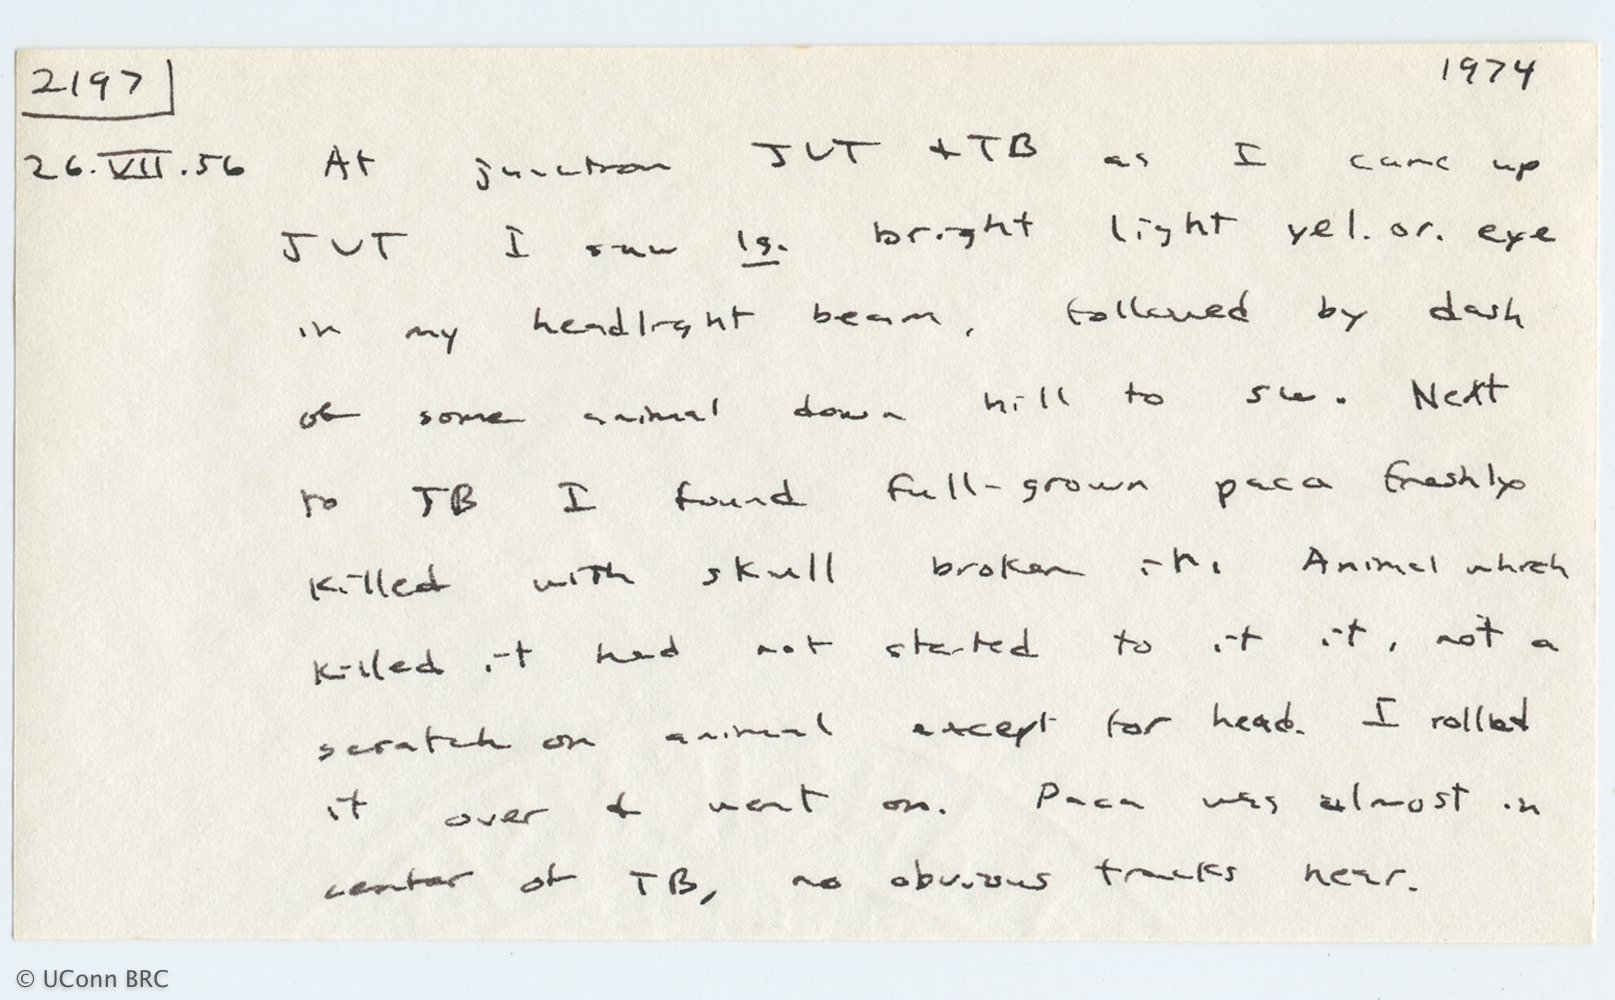 2197
1974
26.VII.56 At junction JVT & TB as I came up
JVT I saw lg. bright light yel. or. eye
in my headlight beam, followed by dash
of some animal down hill to sw. Next
to TB I found full-grown paca freshly
killed with skull broken in. Animal which
killed it had not started to it it, not a
scratch on animal except for head. I rolled
it over & went on. Paca was almost in
center of TB, no obvious tracks near.
© UConn BRC